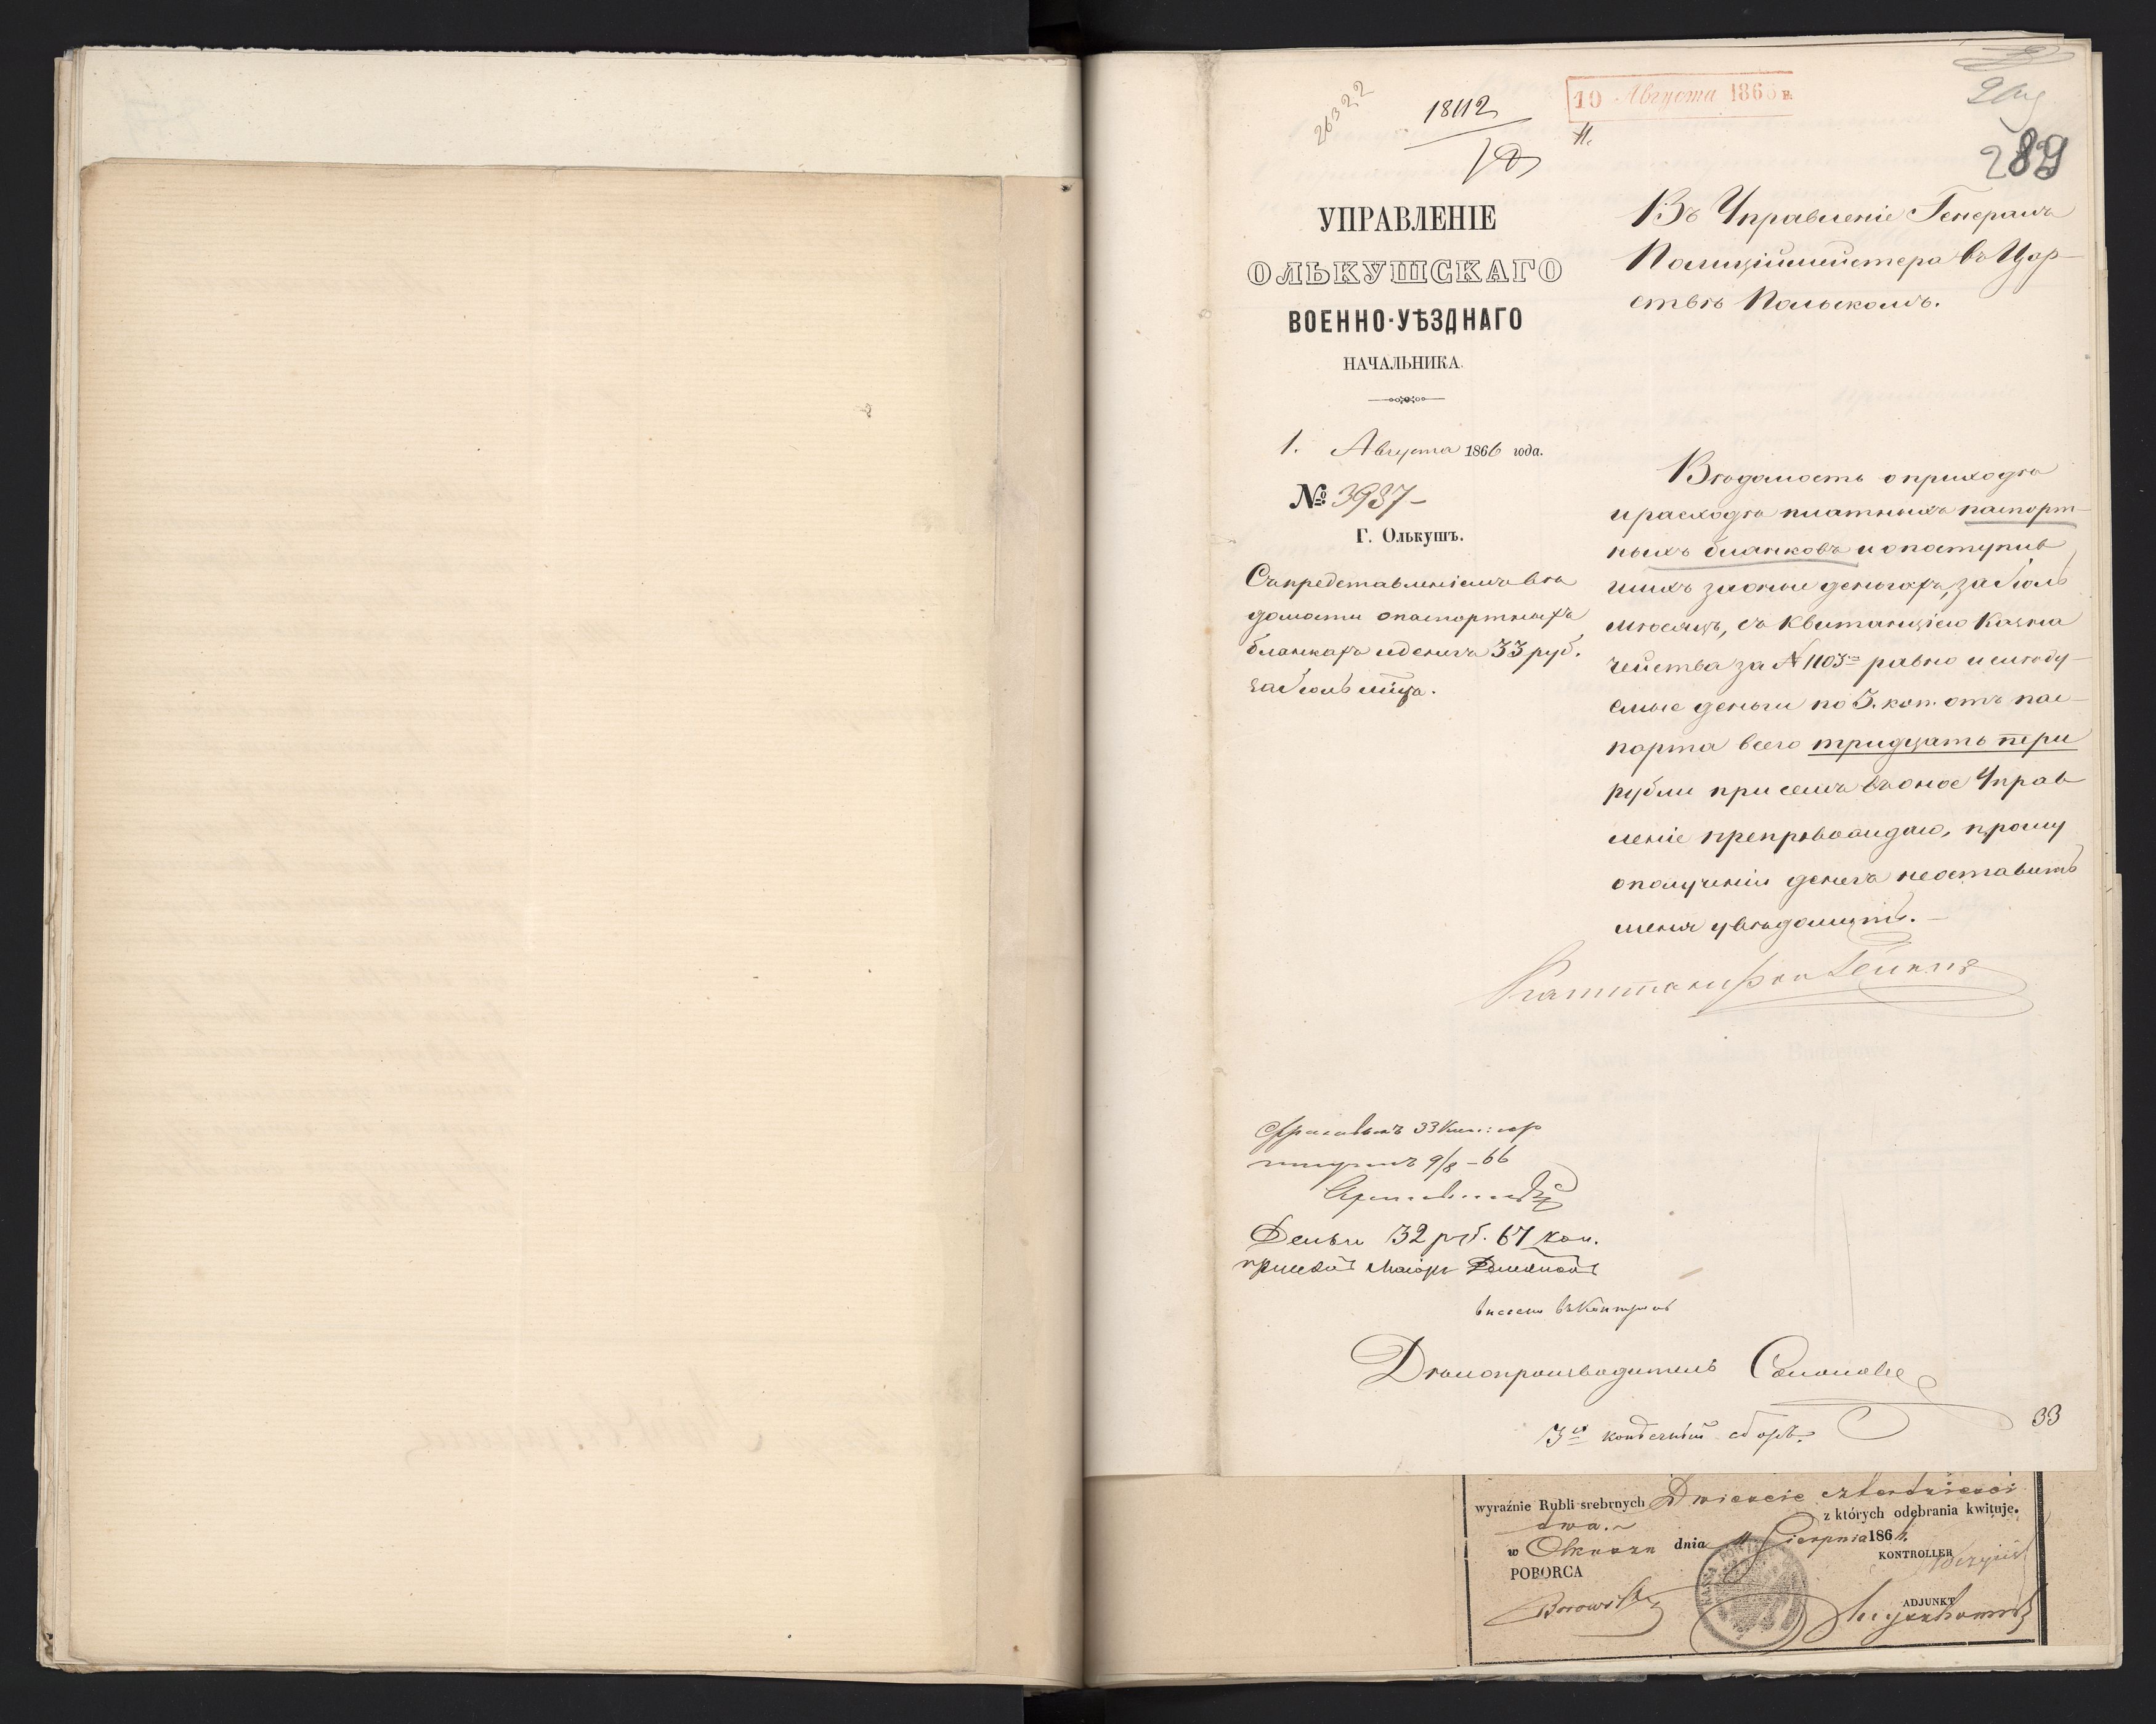 26322
18112
10 Августа 1866 г.
289
УПРАВЛЕНІЕ
ОЛЬКУШСКАГО
ВОЕННО-УѢЗДНАГО
НАЧАЛЬНИКА.
1. Августа 1866 года.
№ 3937
Г. Олькушъ.
Съ представленіемъ вѣ
домости о паспортныхъ
бланкахъ и денегъ 33 руб.
за Іюль мѣца.
Въ Управленіе Генералъ
Полиціймейстера въ Цар-
ствѣ Польскомъ.
Вѣдомость о приходѣ
и расходѣ платныхъ паспорт-
ныхъ бланковъ и о поступив
шихъ за оные деньгахъ, за Іюль
мѣсяцъ, съ квитанціею Казна
чейства за № 1103 равно и слѣду-
емые деньги по 5. коп. отъ пас-
порта всего тридцать три
рубли при семъ въ оное Управ
леніе препровождаю, прошу
о полученіи денегъ не оставить
меня увѣдомить.
Капитанъ фон
33
9/8 - 66
Деньги 32 руб. 67 коп.
принялъ Маіоръ
внесено въ Контроль
Дѣлопроизводитель
3х копѣечный сборъ.
33
wyraźnie Rubli srebrnych Dwieście czterdzieści
dwa.~ z których odebrania kwituje.
w Olkuszu dnia Sierpnia 186
KONTROLLER
POBORCA
Borowski
ADJUNKT